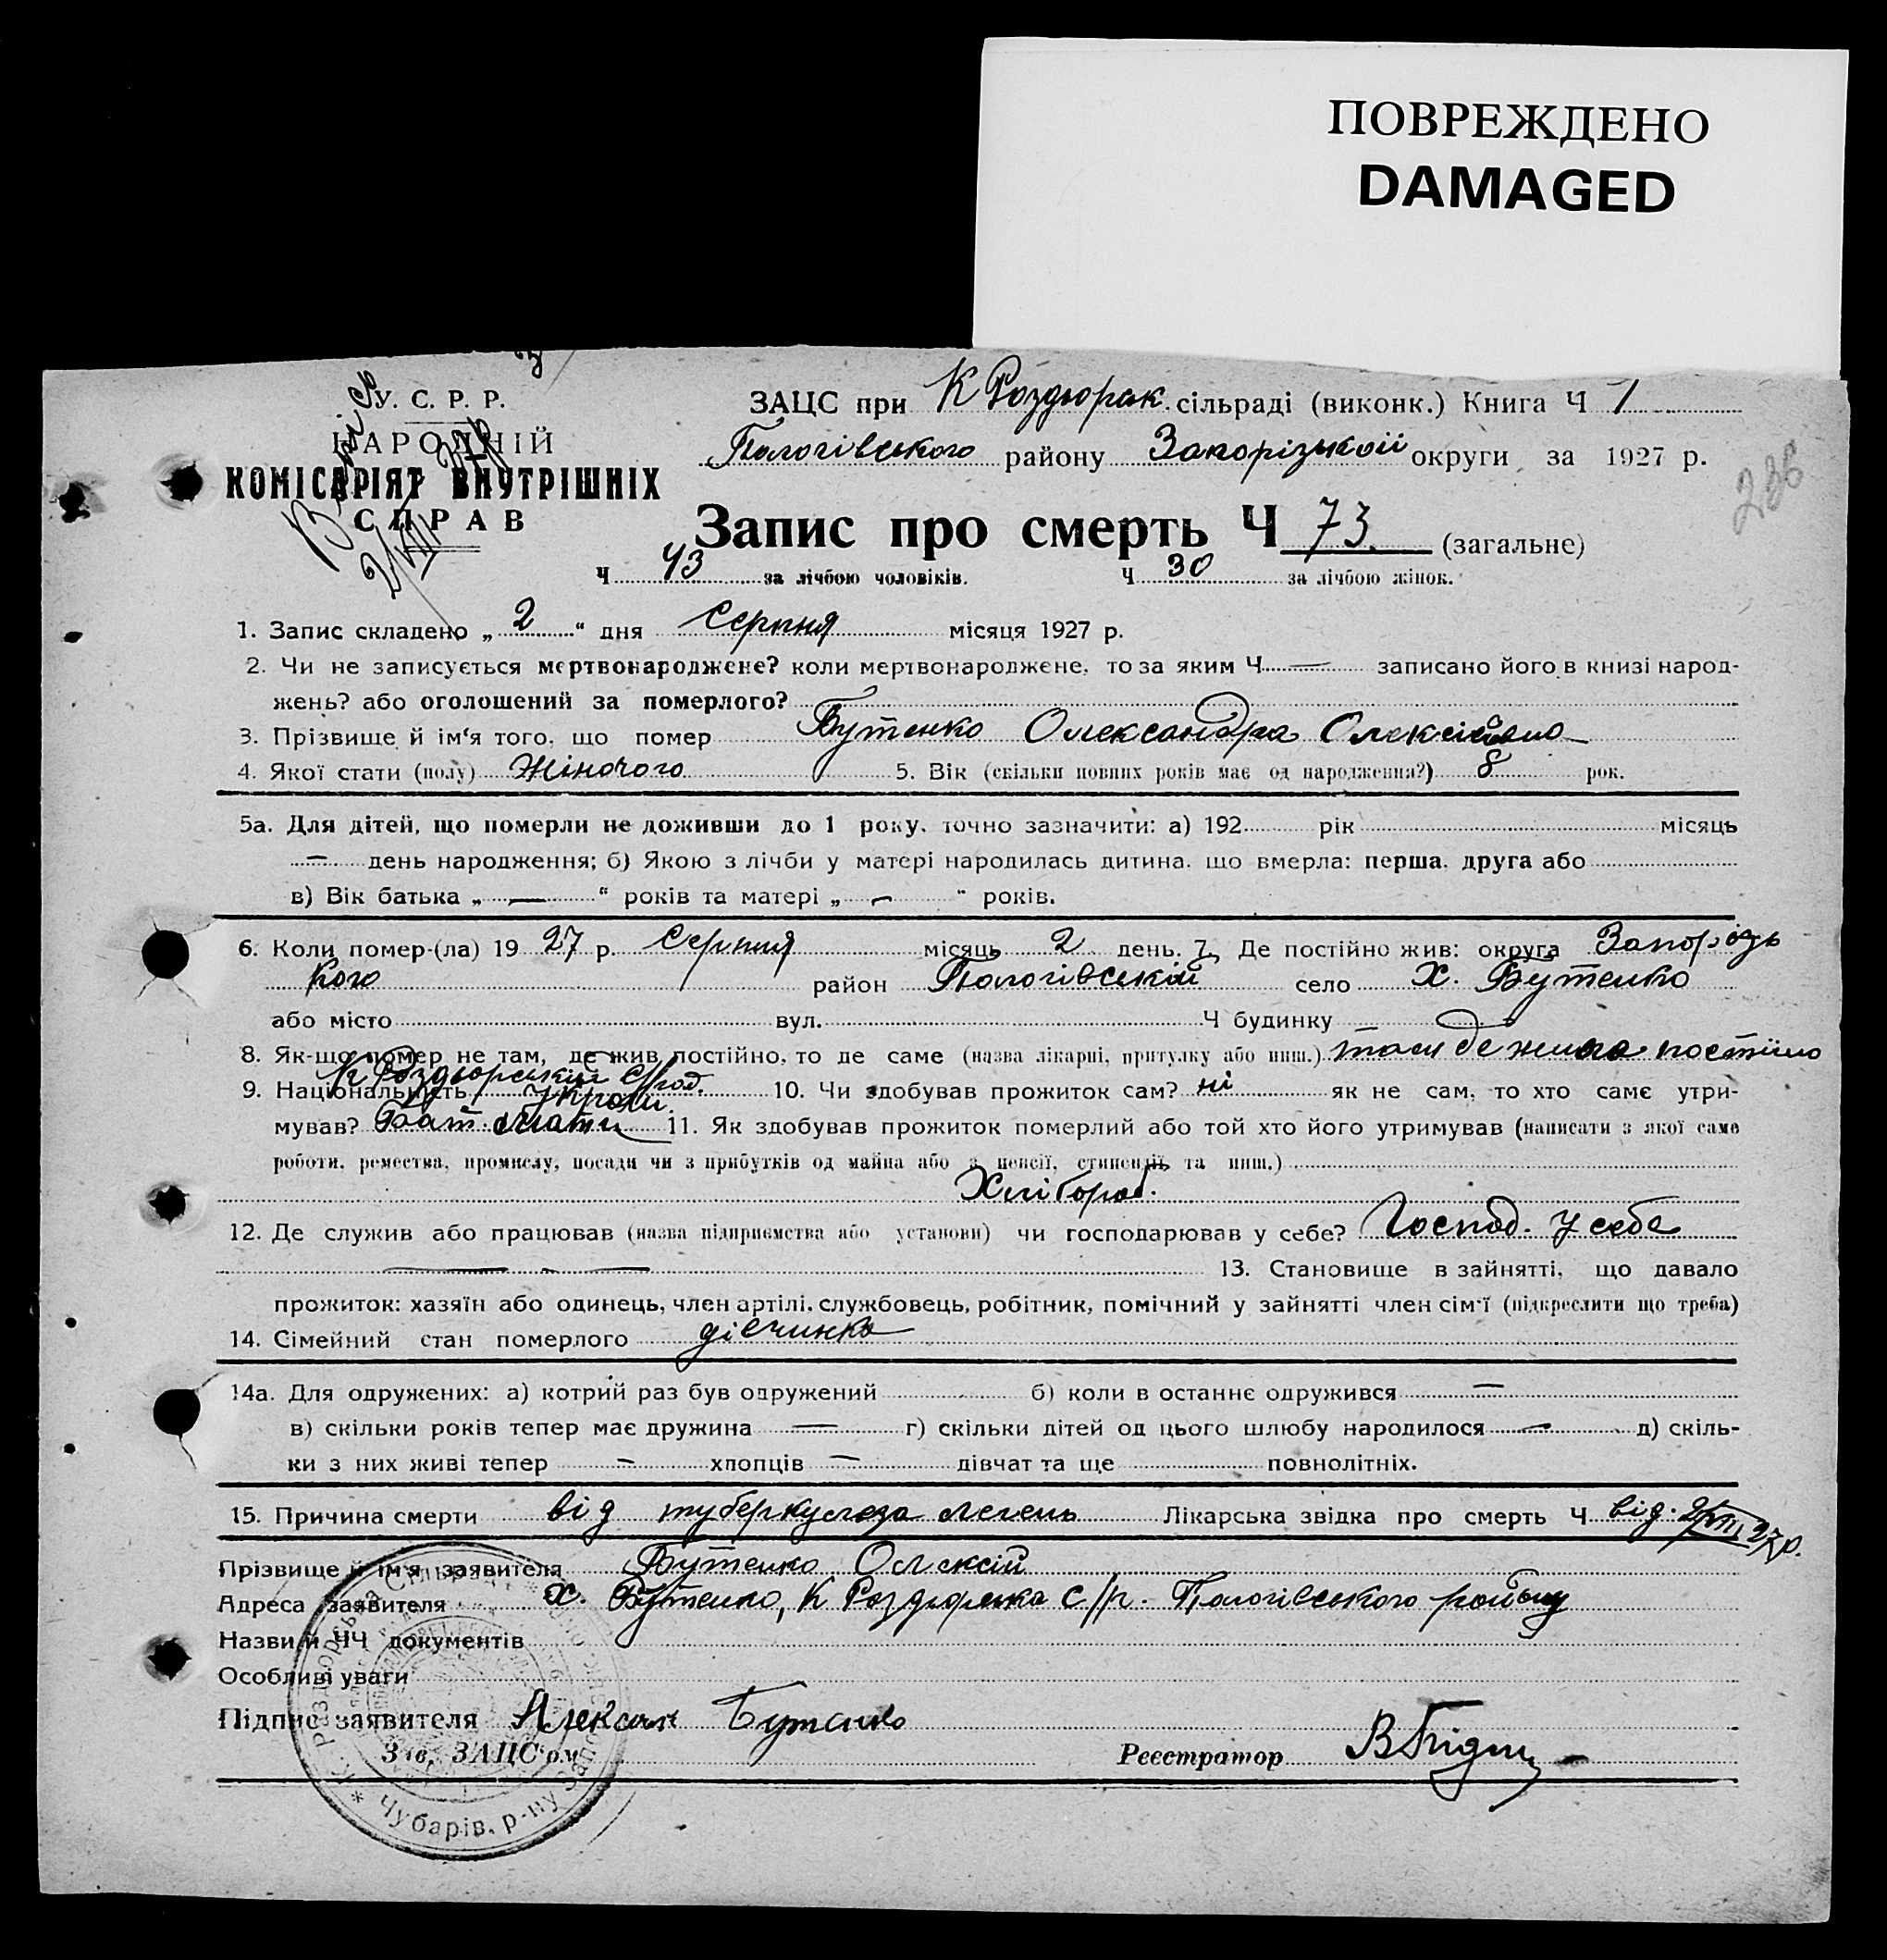 ПОВРЕЖДЕНО
DAMAGED
У. С. Р. Р.
НАРОДНІЙ
КОМІСАРІЯТ ВНУТРІШНІХ
СПРАВ
ЗАЦС при К Роздорак. сільраді (виконк.) Книга Ч 1
Пологівського району Запорізької округи за 1927 р.
236
Запис про смерть Ч 73. (загальне)
Ч 43 за лічбою чоловіків. Ч 30 за лічбою жінок.
1. Запис складено „ 2 “ дня Серпня місяця 1927 р.
2. Чи не записується мертвонароджене? коли мертвонароджене, то за яким Ч — записано його в книзі народ-
жень? або оголошений за померлого?
3. Прізвище й ім'я того, що помер Бутенко Олександра Олексіївна
4. Якої стати (полу) Жіночого 5. Вік (скільки повних років має од народження?) 8 рок.
5а. Для дітей, що померли не доживши до 1 року, точно зазначити: а) 192 рік місяць
— день народження; б) Якою з лічби у матері народилась дитина, що вмерла: перша, друга або
в) Вік батька „ — “ років та матері „ — “ років.
6. Коли помер-(ла) 19 27 р. Серпня місяць 2 день. 7. Де постійно жив: округа Запорізь
кого район Пологівській село Х. Бутенко
або місто вул. Ч будинку
8. Як-що помер не там, де жив постійно, то де саме (назва лікарні, притулку або инш.) там де жила постійно
К Роздорській С/рад.
9. Національність Україн. 10. Чи здобував прожиток сам? ні як не сам, то хто саме утри-
мував? Бат. мати 11. Як здобував прожиток померлий або той хто його утримував (написати з якої саме
роботи, ремества, промислу, посади чи з прибутків од майна або з пенсії, стипендії та инш.)
Хлібороб.
12. Де служив або працював (назва підприємства або установи) чи господарював у себе? Господ. у себе
— — — 13. Становище в зайнятті, що давало
прожиток: хазяїн або одинець, член артілі, службовець, робітник, помічний у зайнятті член сім'ї (підкреслити що треба)
14. Сімейний стан померлого дівчинка
14а. Для одружених: а) котрий раз був одружений б) коли в останнє одружився —
в) скільки років тепер має дружина — г) скільки дітей од цього шлюбу народилося — д) скіль-
ки з них живі тепер — хлопців — дівчат та ще повнолітніх.
15. Причина смерти від туберкулоза легень Лікарська звідка про смерть Ч від 2/VIII 27р.
Прізвище й ім'я заявителя Бутенко Олексій
Адреса заявителя х. Бутенко, К Роздорська с/р. Пологівського району
Назви й ЧЧ документів
Особливі уваги
Підпис заявителя Бутенко
Зав. ЗАЦС'ом Реєстратор
* Чубарів. р-ну